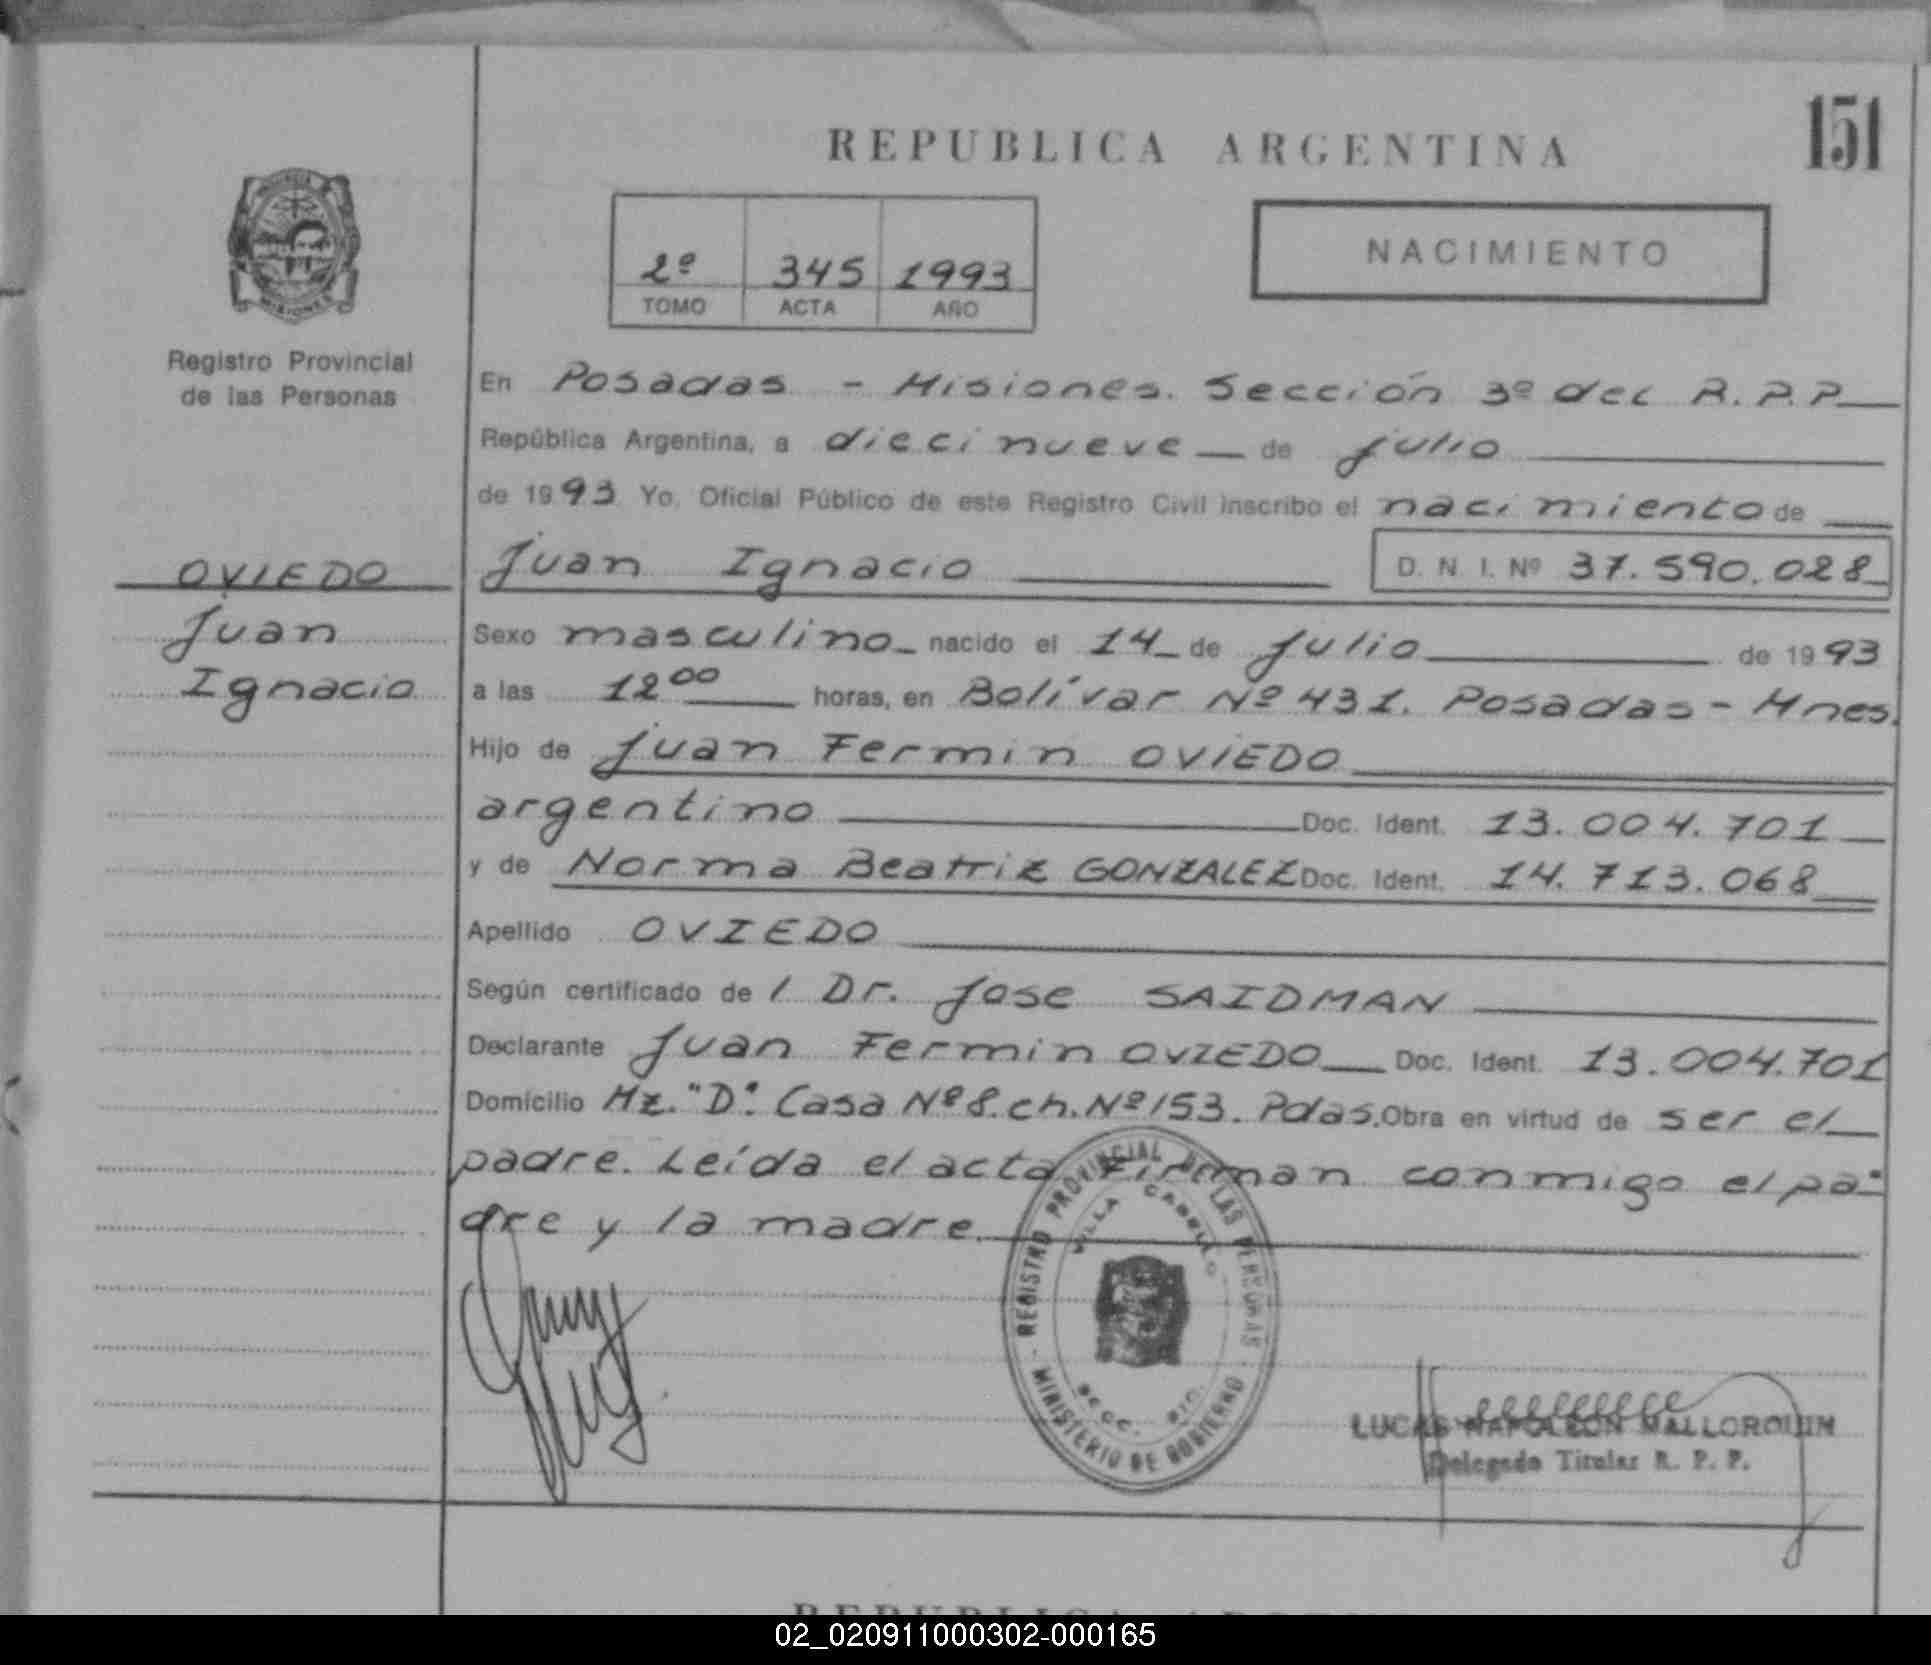 151
REPUBLICA ARGENTINA
NACIMIENTO
2º 345 1993
TOMO ACTA AÑO
PROVINCIA
MISIONES
Registro Provincial
de las Personas
OVIEDO
Juan
Ignacio
En Posadas - Misiones. Sección 3º del R.P.P
República Argentina, a diecinueve de julio
de 1993 Yo, Oficial Público de este Registro Civil inscribo el nacimiento de
Juan Ignacio D. N. I. Nº 37.590.028
Sexo masculino nacido el 14 de julio de 1993
a las 12⁰⁰ horas, en Bolívar Nº 431. Posadas - Mnes.
Hijo de Juan Fermin OVIEDO
argentino Doc. Ident. 13.004.701
y de Norma Beatriz GONZALEZ Doc. Ident. 14.713.068
Apellido OVIEDO
Según certificado de / Dr. Jose SAIDMAN
Declarante Juan Fermin OVIEDO Doc. Ident. 13.004.701
Domicilio Mz. "D". Casa Nº 8. ch. Nº 153. Pdas. Obra en virtud de ser el
padre. Leída el acta firman conmigo el pa-
dre y la madre.
REGISTRO PROVINCIAL DE LAS PERSONAS
VILLA CABELLO
SECC.
MINISTERIO DE GOBIERNO
LUCAS NAPOLEON MALLORQUIN
Delegado Titular R. P. P.
02_020911000302-000165